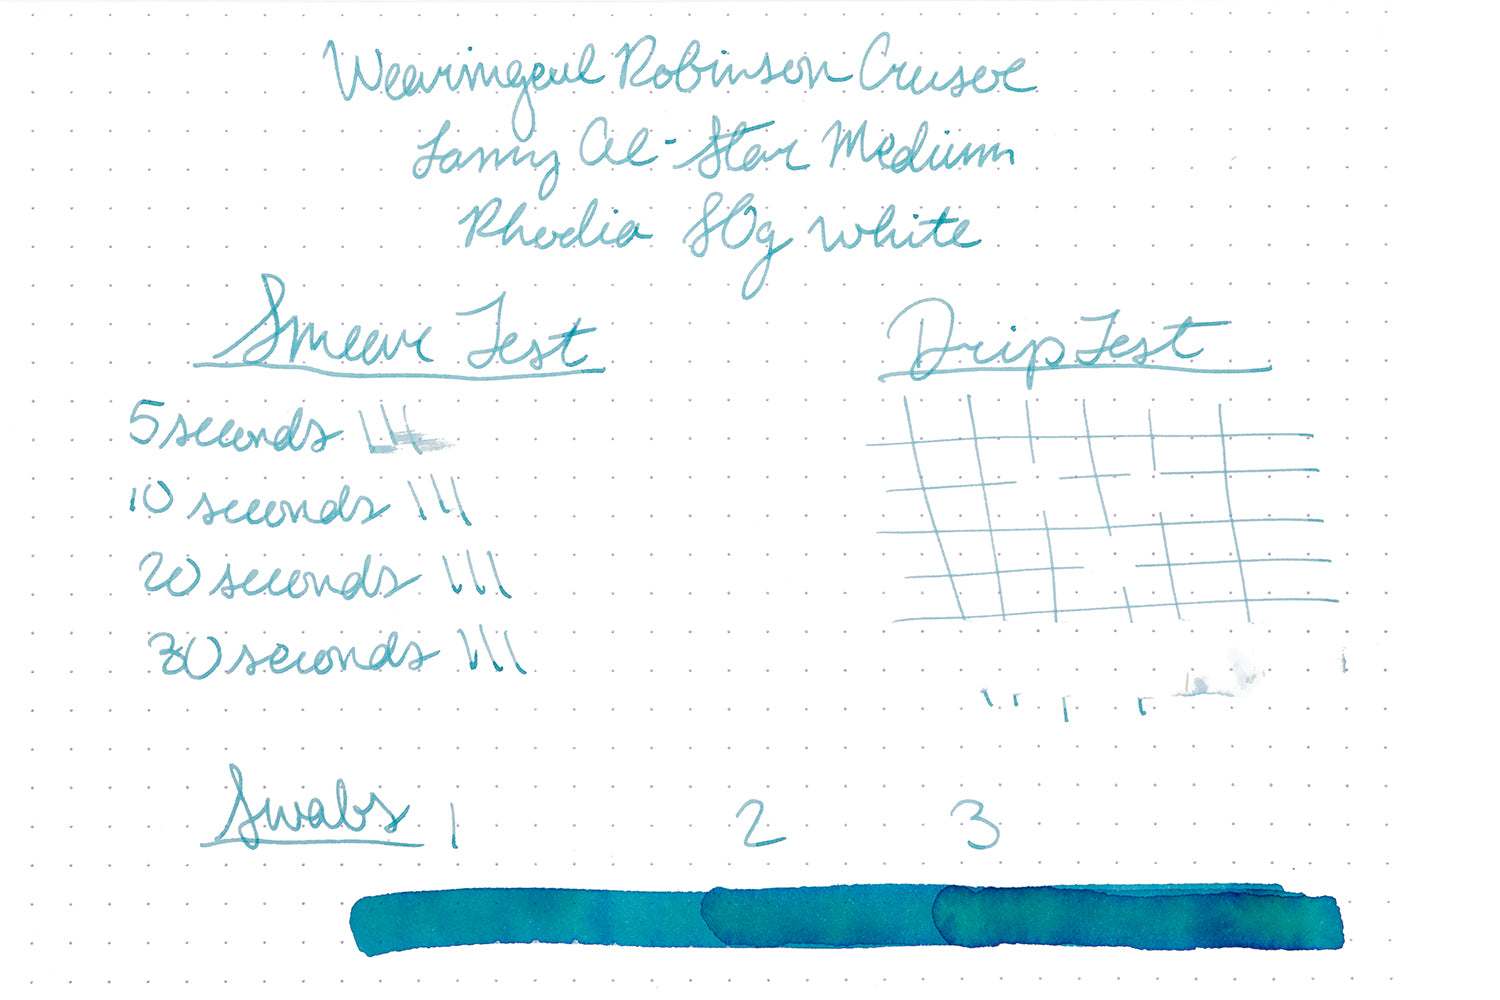 Wearingeul Robinson Crusoe
Lamy Al-Star Medium
Rhodia 80g white
Smear Test
Drip Test
5 seconds
10 seconds
20 seconds
30 seconds
Swabs 1 2 3